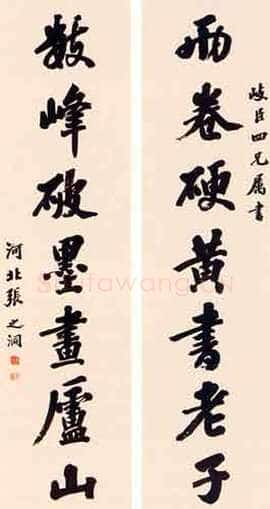 岐臣四兄属書
兩卷硬黃書老子
數峰破墨畫廬山
河北張之洞